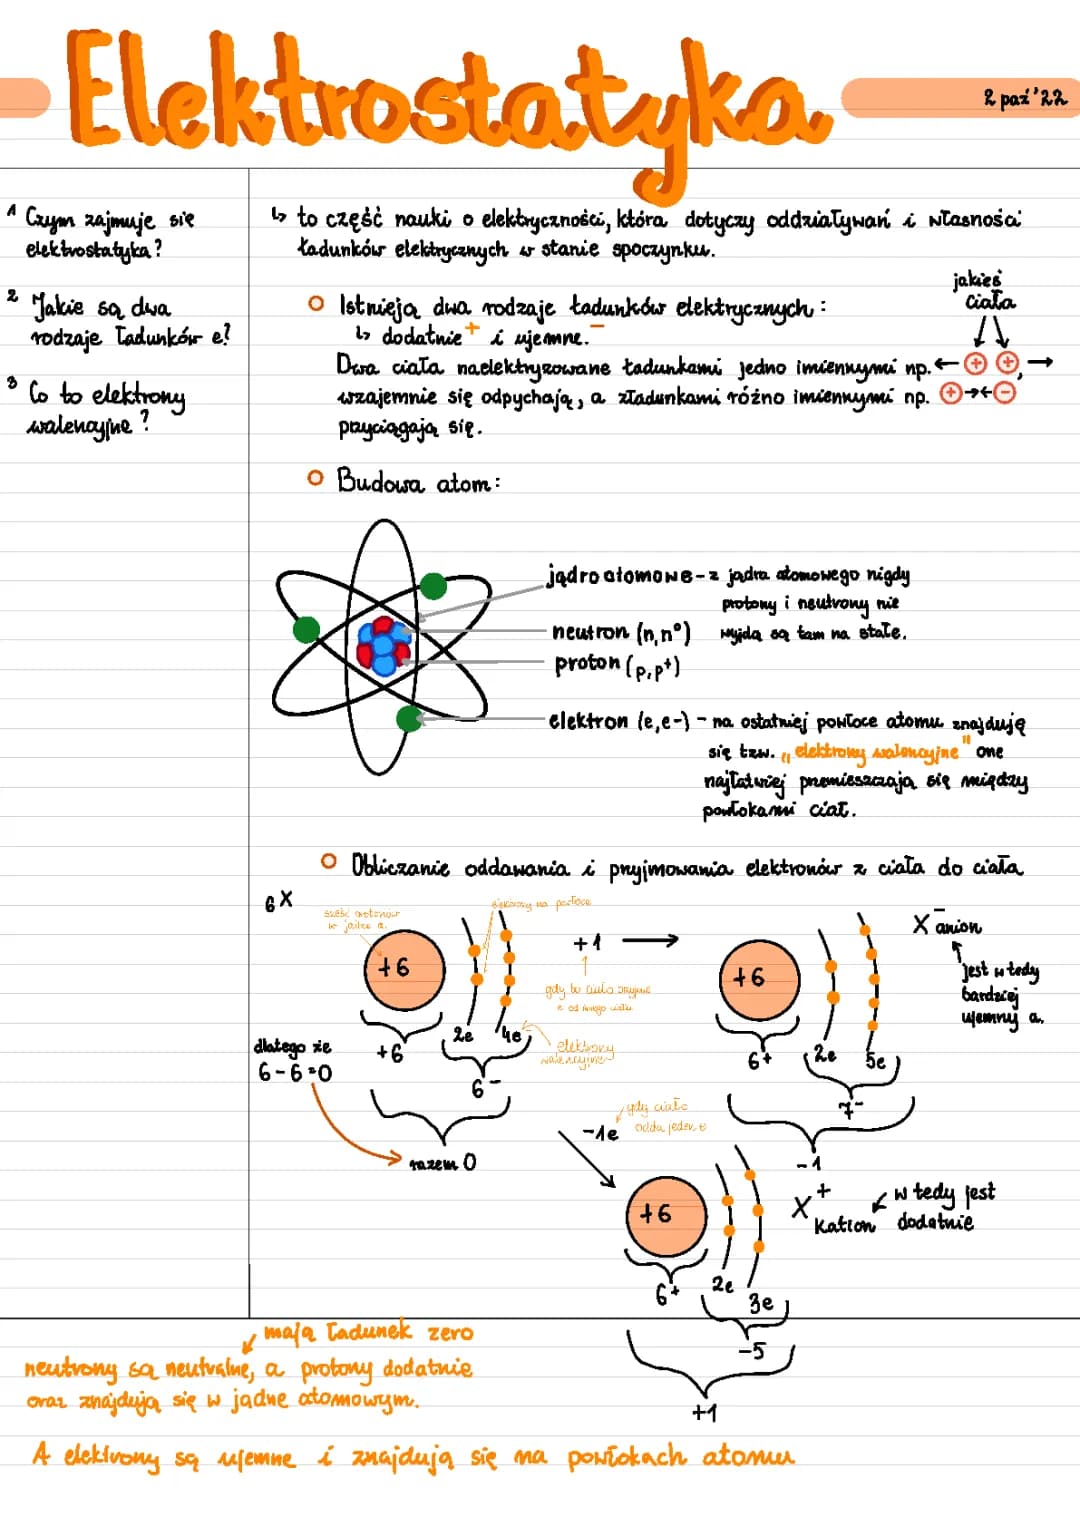 Elektrostatyka
2 paź '22
1 Czym zajmuje się
elektrostatyka?
2 Jakie są dwa
rodzaje ładunków e?
3 Co to elektrony
walencyjne?
↳ to część nauki o elektryczności, która dotyczy oddziaływań i własności
ładunków elektrycznych w stanie spoczynku.
jakieś
ciała
Istnieją dwa rodzaje ładunków elektrycznych:
↳ dodatnie + i ujemne. −
Dwa ciała naelektryzowane ładunkami jedno imiennymi np. ← + + , →
wzajemnie się odpychają, a z ładunkami różno imiennymi np. + → ← −
przyciągają się.
Budowa atom:
jądro atomowe - z jądra atomowego nigdy
protony i neutrony nie
wyjdą są tam na stałe.
neutron (n, n°)
proton (p, p+)
elektron (e, e-) - na ostatniej powłoce atomu znajduję
się tzw. „elektrony walencyjne" one
najłatwiej przemieszczają się między
powłokami ciał.
Obliczanie oddawania i przyjmowania elektronów z ciała do ciała
6 X
sześć protonów
w jądrze a.
elektrony na powłoce
+6
+6
2e
4e
6-
elektrony
walencyjne
dlatego że
6-6=0
razem 0
+1 →
gdy to ciało przyjmie
e od innego ciała
+6
6+
2e
5e
7-
-1
X− anion
jest wtedy
bardziej
ujemny a.
-1e
gdy ciało
odda jeden e
+6
6+
2e
3e
-5
+1
X+
Kation
w tedy jest
dodatnie
mają ładunek zero
neutrony są neutralne, a protony dodatnie
oraz znajdują się w jądrze atomowym.
A elektrony są ujemne i znajdują się na powłokach atomu